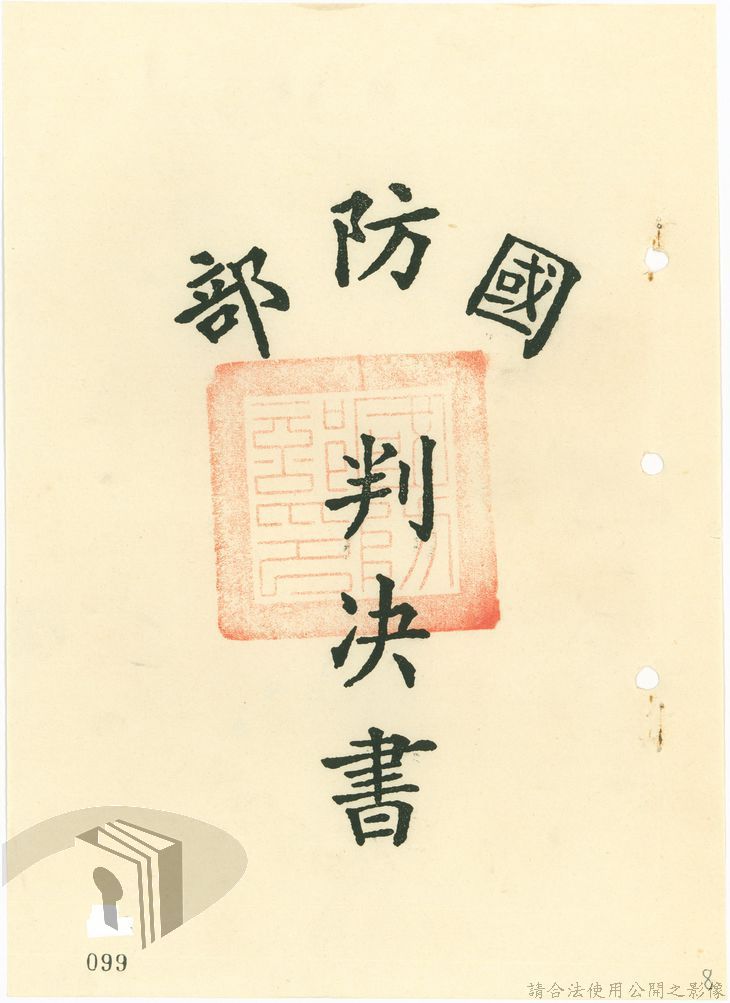 國防部
判決書
099
8
請合法使用公開之影像